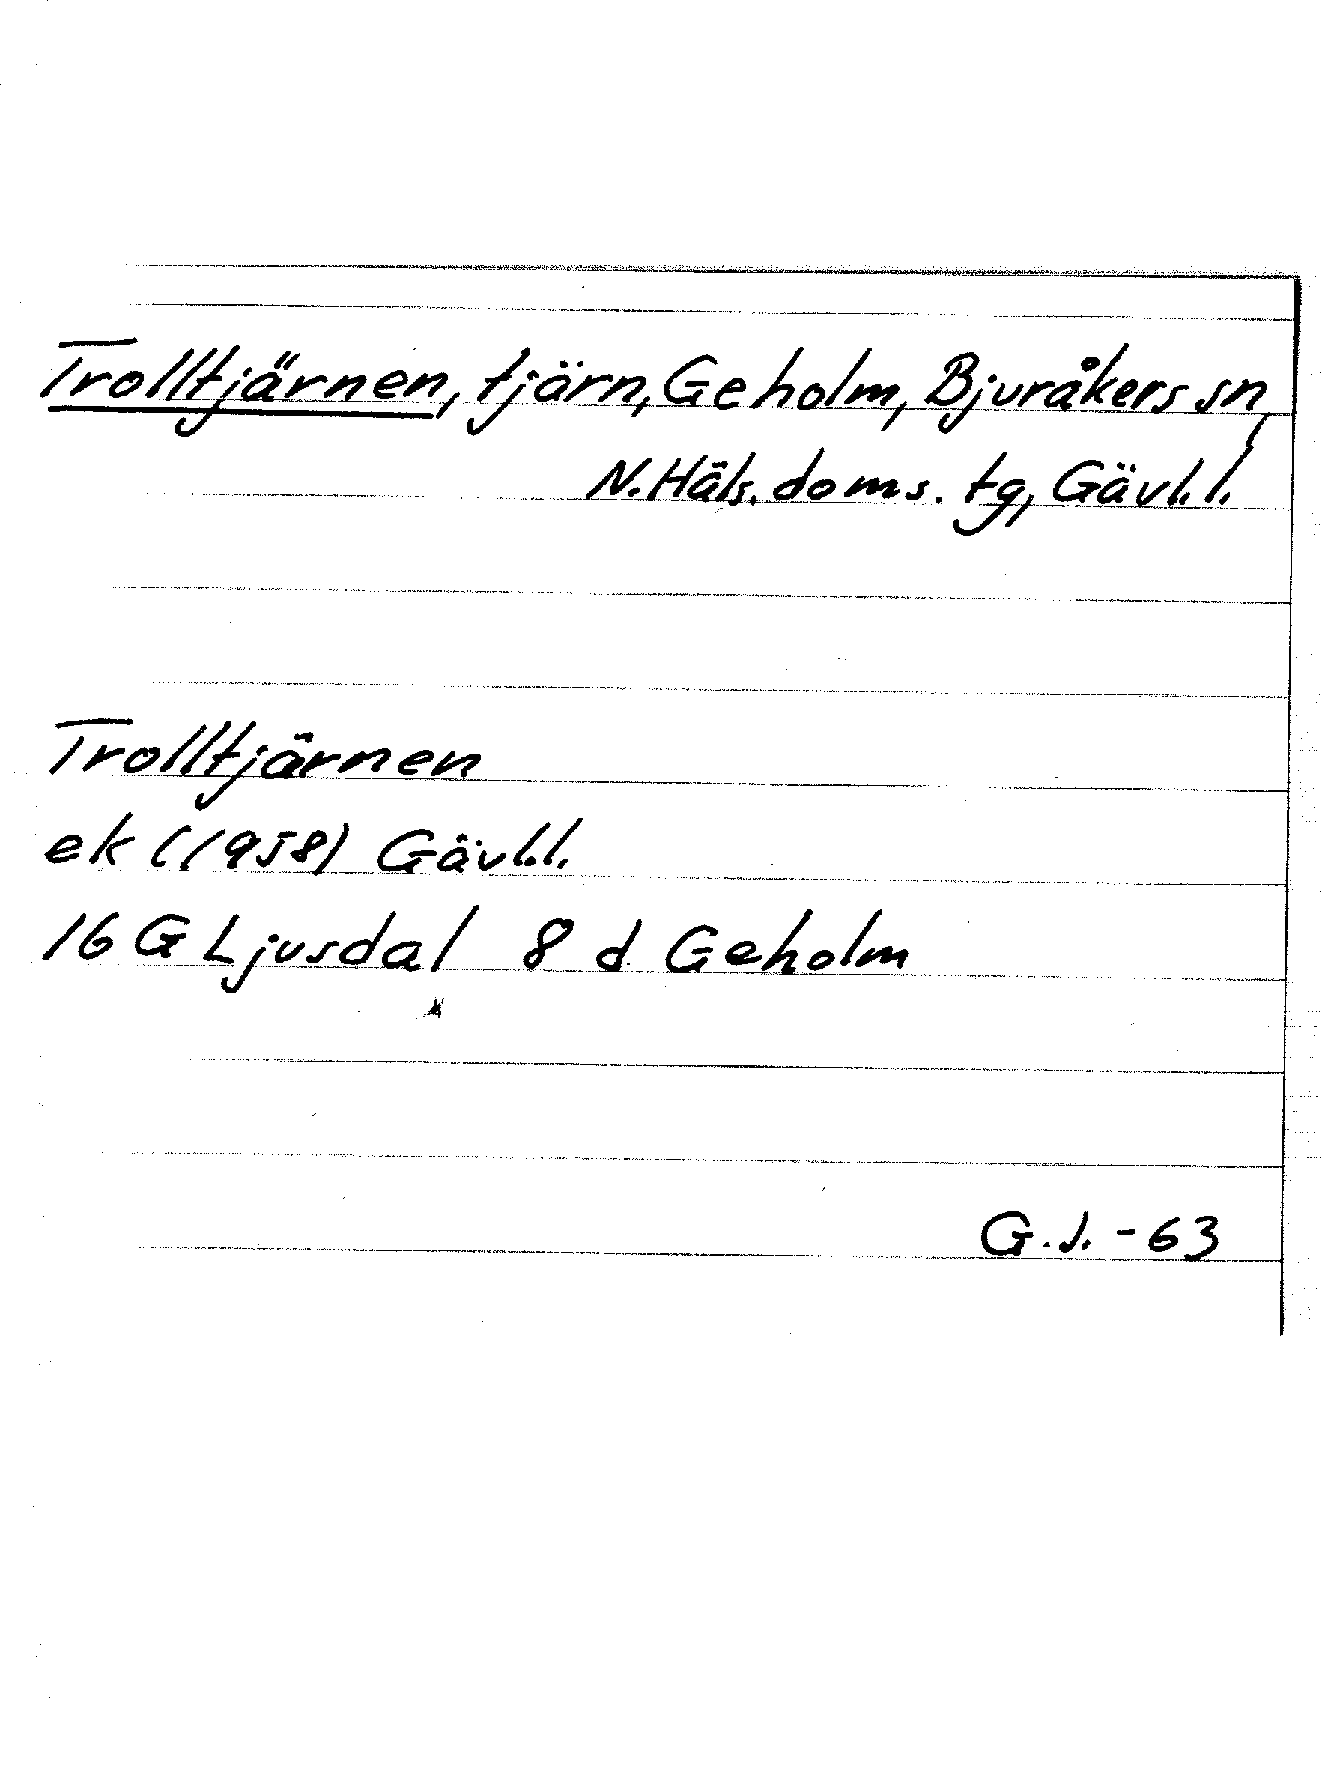 Trolltjärnen, tjärn, Geholm, Bjuråkers sn,
N. Häls. doms. tg, Gävl. l.
Trolltjärnen
ek (1958) Gävl.l.
16 G Ljusdal 8 d Geholm
G.J. - 63